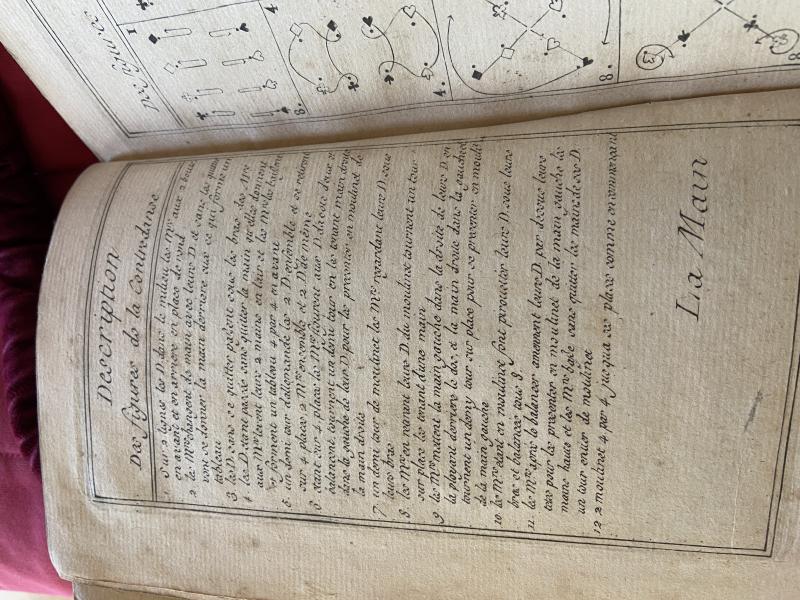 Description
Des figures de la Contredanse
1 Sur 2 lignes les D. dans le milieu les Mrs. aux 2 bouts
en avant et en arriere en place de rond
2 les Mrs. changent de main avec leurs D. et sans les quitter
vont se donner la main derriere eux ce qui forme un
tableau
3 les D. sans se quitter passent sous les bras des Mrs.
4 les D. étant passé sans quitter la main qu'elles donnent
aux Mrs. levent leurs 2 mains en lair et les Mrs. les baissent
et forment un tableau 4 par 4 en avant
5 un demi tour d'allemande les 2 D. ensemble et se retirent
sur 4 place 2 Mrs. ensemble et 2 D. de même
6 étant sur 4 place les Mrs.
balancent, tournent un demi tour en les tenant main droite
dans la gauche de leur D. pour les presenter en moulinet de
la main droite
7 un demi tour de moulinet les Mrs. regardant leurs D. sous
leurs bras
8 les Mrs. en menant leurs D. du moulinet tournent un tour
sur place les tenant d'une main
9 les Mrs. mettent la main gauche dans la droite de leurs D. en
la ployant derriere le dos, et la main droite dans la gauche et
tournent un demy tour sur place pour se presenter en mouli
de la main gauche
10 les Mrs. étant en moulinet font pirouetter leurs D. sous leurs
bras et balancez tous 8
11 les Mrs. après le balancer amennent leurs D. par dessus leurs
tetes pour les presenter en moulinet de la main gauche les
mains hauts et les Mrs. bas sans quitter les mains de ses D.
un tour entier de moulinet
12 2 moulinet 4 par 4 jusqua ses place comme en commençant
La Main
Des figures
1
3.
4.
4.
8.
8